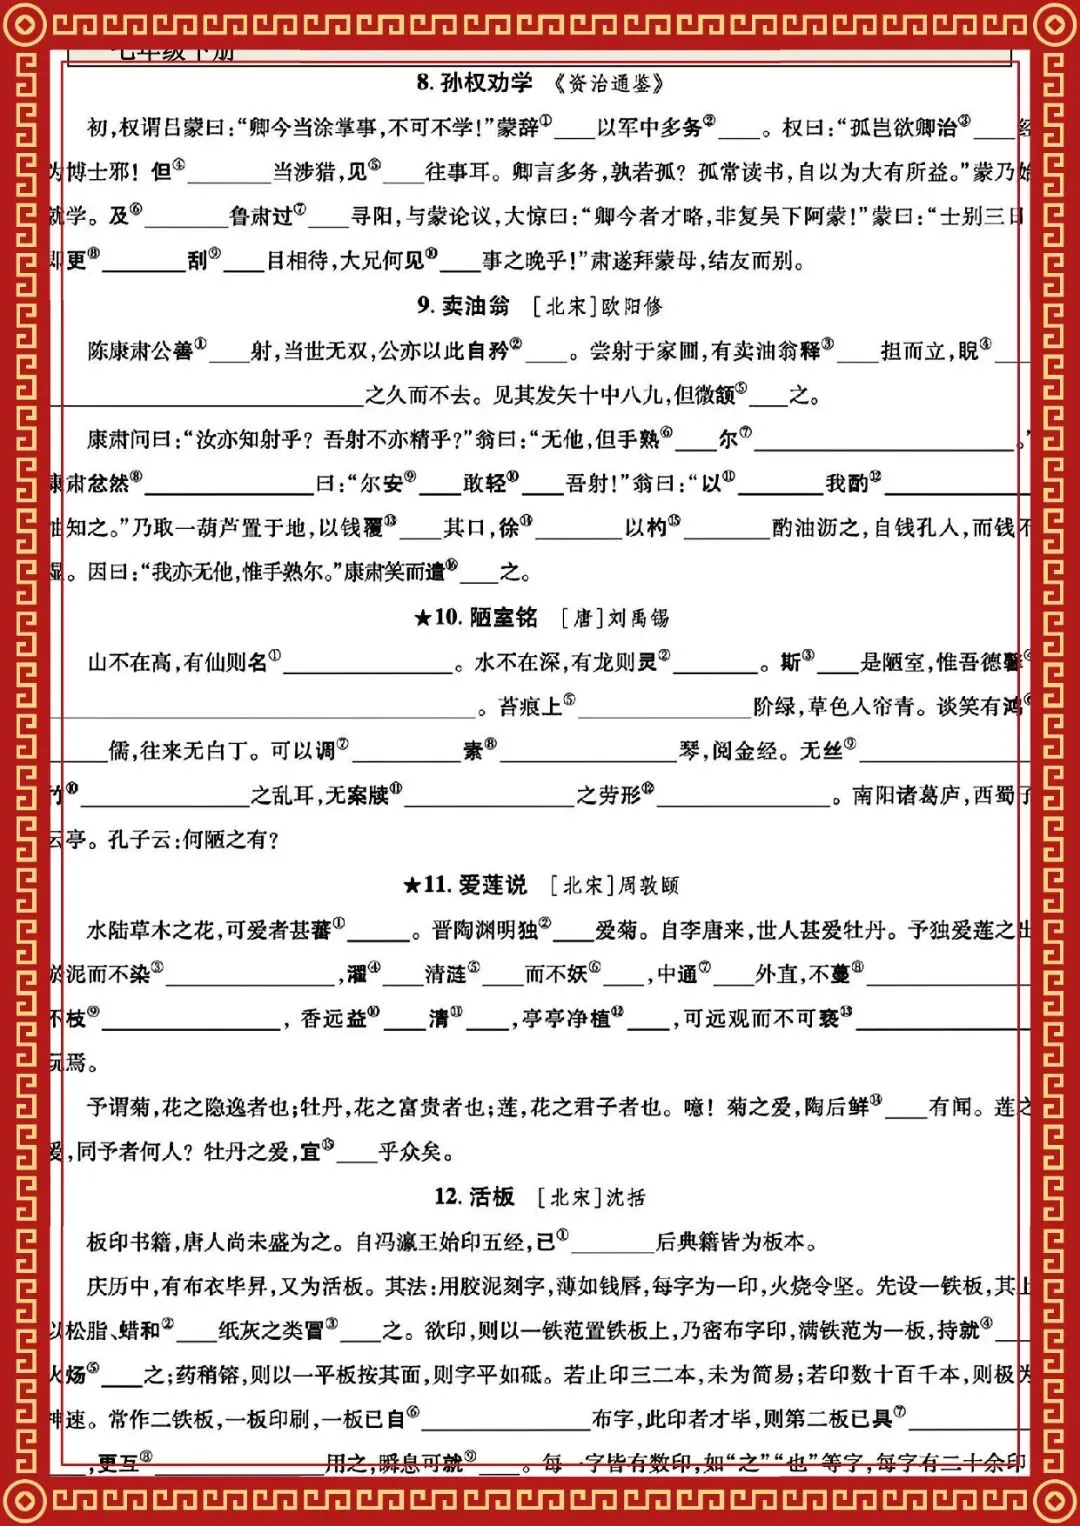 七年级下册
8. 孙权劝学 《资治通鉴》
初,权谓吕蒙曰:“卿今当涂掌事,不可不学!”蒙辞①____以军中多务②____。权曰:“孤岂欲卿治③____经
为博士邪!但④________当涉猎,见⑤____往事耳。卿言多务,孰若孤?孤常读书,自以为大有所益。”蒙乃始
就学。及⑥________鲁肃过⑦____寻阳,与蒙论议,大惊曰:“卿今者才略,非复吴下阿蒙!”蒙曰:“士别三日
即更⑧________刮⑨____目相待,大兄何见⑩____事之晚乎!”肃遂拜蒙母,结友而别。
9. 卖油翁 [北宋]欧阳修
陈康肃公善①____射,当世无双,公亦以此自矜②____。尝射于家圃,有卖油翁释③____担而立,睨④____
____之久而不去。见其发矢十中八九,但微颔⑤____之。
康肃问曰:“汝亦知射乎?吾射不亦精乎?”翁曰:“无他,但手熟⑥____尔⑦____。”
康肃忿然⑧____曰:“尔安⑨____敢轻⑩____吾射!”翁曰:“以⑪________我酌⑫____
油知之。”乃取一葫芦置于地,以钱覆⑬____其口,徐⑭________以杓⑮________酌油沥之,自钱孔入,而钱不
湿。因曰:“我亦无他,惟手熟尔。”康肃笑而遣⑯____之。
★10. 陋室铭 [唐]刘禹锡
山不在高,有仙则名①____。水不在深,有龙则灵②____。斯③____是陋室,惟吾德馨④
____。苔痕上⑤____阶绿,草色入帘青。谈笑有鸿⑥
____儒,往来无白丁。可以调⑦____素⑧____琴,阅金经。无丝⑨____
竹⑩____之乱耳,无案牍⑪____之劳形⑫____。南阳诸葛庐,西蜀子
云亭。孔子云:何陋之有?
★11. 爱莲说 [北宋]周敦颐
水陆草木之花,可爱者甚蕃①____。晋陶渊明独②____爱菊。自李唐来,世人甚爱牡丹。予独爱莲之出
淤泥而不染③____,濯④____清涟⑤____而不妖⑥____,中通⑦____外直,不蔓⑧____
不枝⑨____,香远益⑩____清⑪____,亭亭净植⑫____,可远观而不可亵⑬____
玩焉。
予谓菊,花之隐逸者也;牡丹,花之富贵者也;莲,花之君子者也。噫!菊之爱,陶后鲜⑭____有闻。莲之
爱,同予者何人?牡丹之爱,宜⑮____乎众矣。
12. 活板 [北宋]沈括
板印书籍,唐人尚未盛为之。自冯瀛王始印五经,已①________后典籍皆为板本。
庆历中,有布衣毕昇,又为活板。其法:用胶泥刻字,薄如钱唇,每字为一印,火烧令坚。先设一铁板,其上
以松脂、蜡和②____纸灰之类冒③____之。欲印,则以一铁范置铁板上,乃密布字印,满铁范为一板,持就④____
火炀⑤____之;药稍镕,则以一平板按其面,则字平如砥。若止印三二本,未为简易;若印数十百千本,则极为
神速。常作二铁板,一板印刷,一板已自⑥____布字,此印者才毕,则第二板已具⑦____
____,更互⑧____用之,瞬息可就⑨____。每一字皆有数印,如“之”“也”等字,每字有二十余印